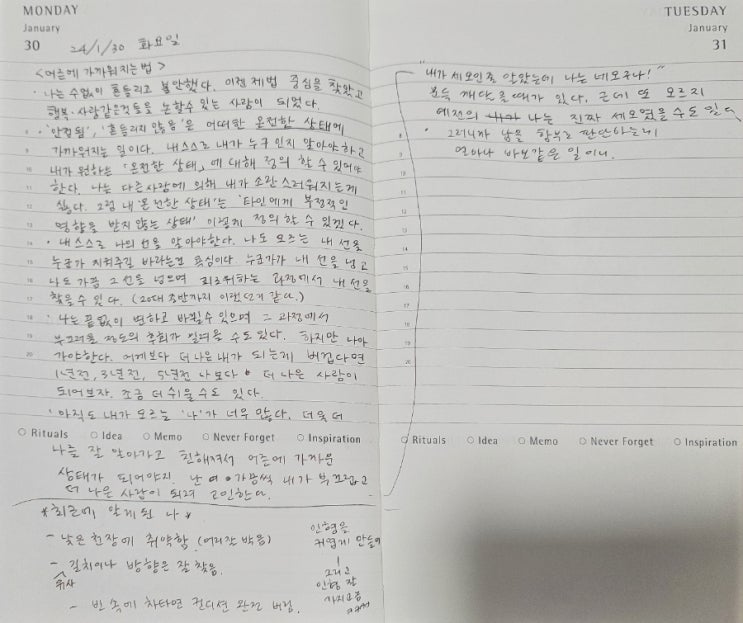 MONDAY
January
30
24/1/30 화요일
<어른에 가까워지는법>
· 나는 수없이 흔들리고 불안했다. 이젠 제법 중심을 찾았고
행복·사랑같은것들을 논할수 있는 사람이 되었다.
· '안정됨', '흔들리지 않음'은 어떠한 온전한 상태에
가까워지는 일이다. 내스스로 내가 누구인지 알아야하고
내가 원하는 '온전한 상태'에 대해 정의 할 수 있어야
한다. 나는 다른사람에 의해 내가 소란스러워지는게
싫다. 그럼 내 '온전한 상태'는 '타인에게 부정적인
영향을 받지 않는 상태' 이렇게 정의 할 수 있겠다.
· 내스스로 나의 선을 알아야한다. 나도 모르는 내 선을
누군가 지켜주길 바라는건 욕심이다 누군가가 내 선을 넘고
나도 가끔 그 선을 넘으며 괴로워하는 과정에서 내 선을
찾을수 있다. (20대 중반까지 이랬던거 같다.)
· 나는 끝없이 변하고 바뀔수 있으며 그 과정에서
부끄러울 정도의 후회가 밀려올 수도 있다. 하지만 나아
가야한다. 어제보다 더 나은 내가 되는게 버겁다면
1년전, 3년전, 5년전 나보다 더 나은 사람이
되어보자. 조금 더 쉬울 수도 있다.
· 아직도 내가 모르는 '나'가 너무 많다. 더욱 더
Rituals Idea Memo Never Forget Inspiration
나를 잘 알아가고 친해져서 어른에 가까운
상태가 되어야지. 난 가끔씩 내가 부끄럽고
더 나은 사람이 되려 고민한다.
*최근에 알게된 나*
- 낮은 천장에 취약함. (머리잔 박음)
- 길치이나 방향은 잘 찾음.
- 빈 속에 차타면 컨디션 완전 버림.
인형을
귀엽게 만들어
그리고
인형 잘
TUESDAY
January
31
"내가 세모인줄 알았는데 나는 네모구나!"
문득 깨달을때가 있다. 근데 또 모르지
예전의 나는 진짜 세모였을수도 있어
· 그러니까 남을 함부로 판단하는게
얼마나 바보같은 일이니.
Rituals Idea Memo Never Forget Inspiration